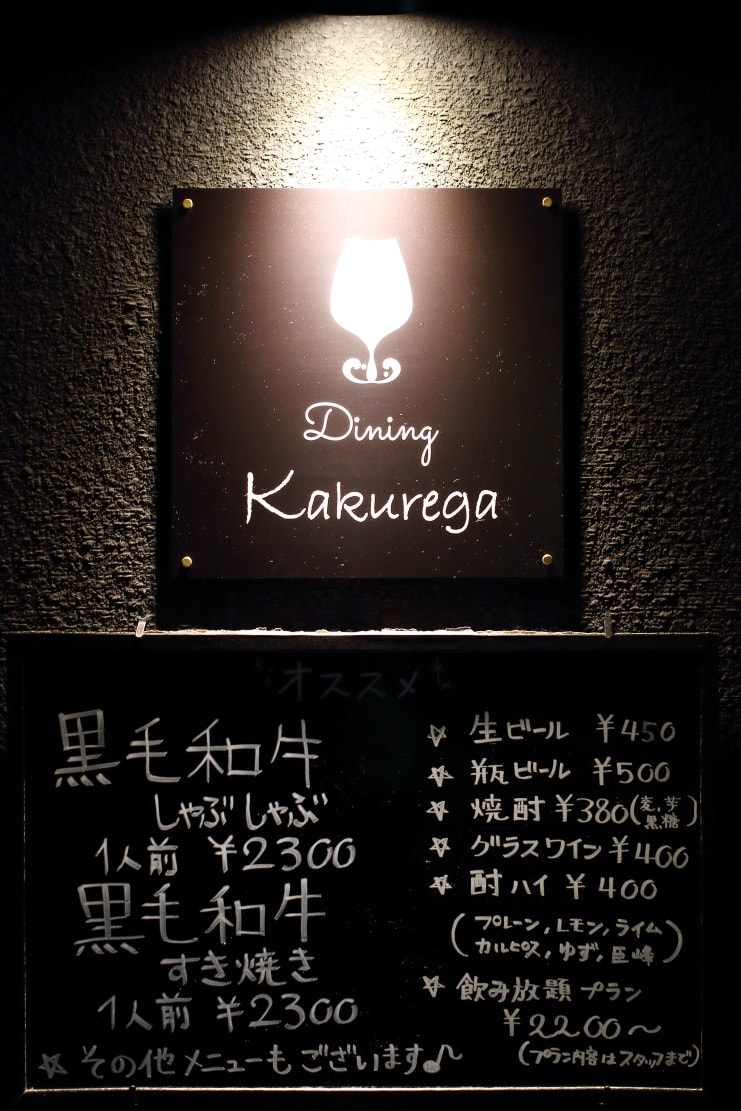 Dining
Kakurega
オススメ
黒毛和牛
しゃぶしゃぶ
1人前 ¥2300
黒毛和牛
すき焼き
1人前 ¥2300
☆ その他メニューもございます♪
☆ 生ビール ¥450
☆ 瓶ビール ¥500
☆ 焼酎 ¥380(麦,芋
黒糖)
☆ グラスワイン ¥400
☆ 酎ハイ ¥400
(プレーン,レモン,ライム
カルピス,ゆず,巨峰)
☆ 飲み放題プラン
¥2200〜
(プラン内容はスタッフまで)